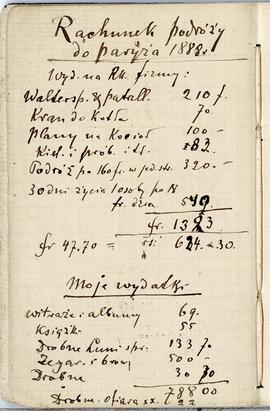 Rachunek podróży
do paryża 1888r.
Wyd. na Rk. firmy:
Waltersp. & patall. 210 f.
Kran do kotła 70.
Plany na Kocioł 100 —
Kieł. i prób. i t. 82 —
Podróż po 160 fr. w jed. str. 320.—
30 dni życia 1 osoby po 18
fr. dzien. 540.
fr. 1323
fr 47.70 = rs. 624.30.
Moje wydatki
witraże i albumy 69.
Książk. 55
Drobne 133 70
Zegar. i bron 500 —
Drobne 30 30
788 00
Drobn. ofiara xx. 22